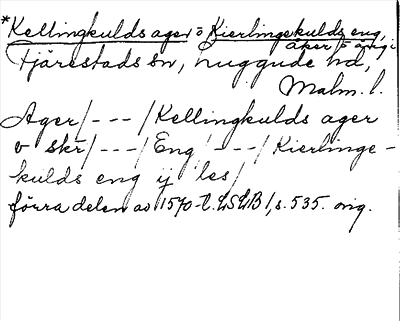 *Kellingkulds ager o Kierlingekulds eng,
åker o äng i
Fjärestads sn, Luggude hd,
Malm. l.
Ager/---/Kellingkulds ager
v skr/---/Eng/---/Kierlinge-
kulds eng ij les/
förra delen av 1570-t. LSLB 1, s. 535. orig.